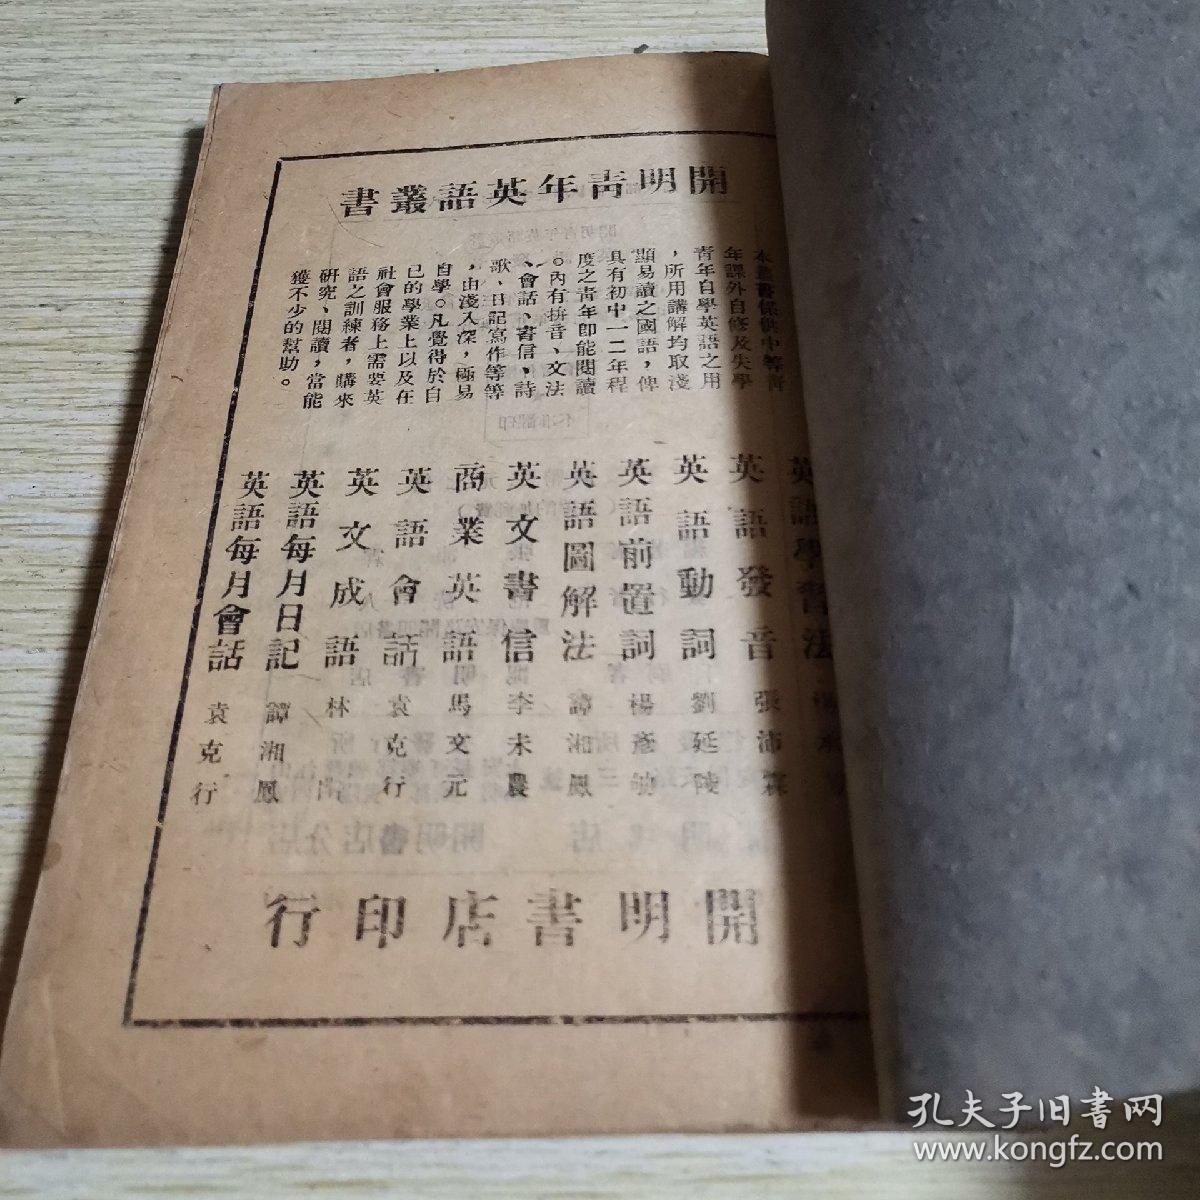 開明青年英語叢書
本叢書係供中等青
年課外自修及失學
青年自學英語之用
，所用講解均取淺
顯易讀之國語，俾
具有初中一二年程
度之青年卽能閱讀
。內有拼音、文法
、會話、書信、詩
歌、日記寫作等等
，由淺入深，極易
自學。凡覺得於自
已的學業上以及在
社會服務上需要英
語之訓練者，購來
研究、閱讀，當能
獲不少的幫助。
英語學習法
英語發音 張沛霖
英語動詞 劉延陵
英語前置詞 楊彥劬
英語圖解法 譚湘鳳
英文書信 李未農
商業英語 馬文元
英語會話 袁克行
英文成語 林
英語每月日記 譚湘鳳
英語每月會話 袁克行
開明書店印行
孔夫子旧书网
www.kongfz.com